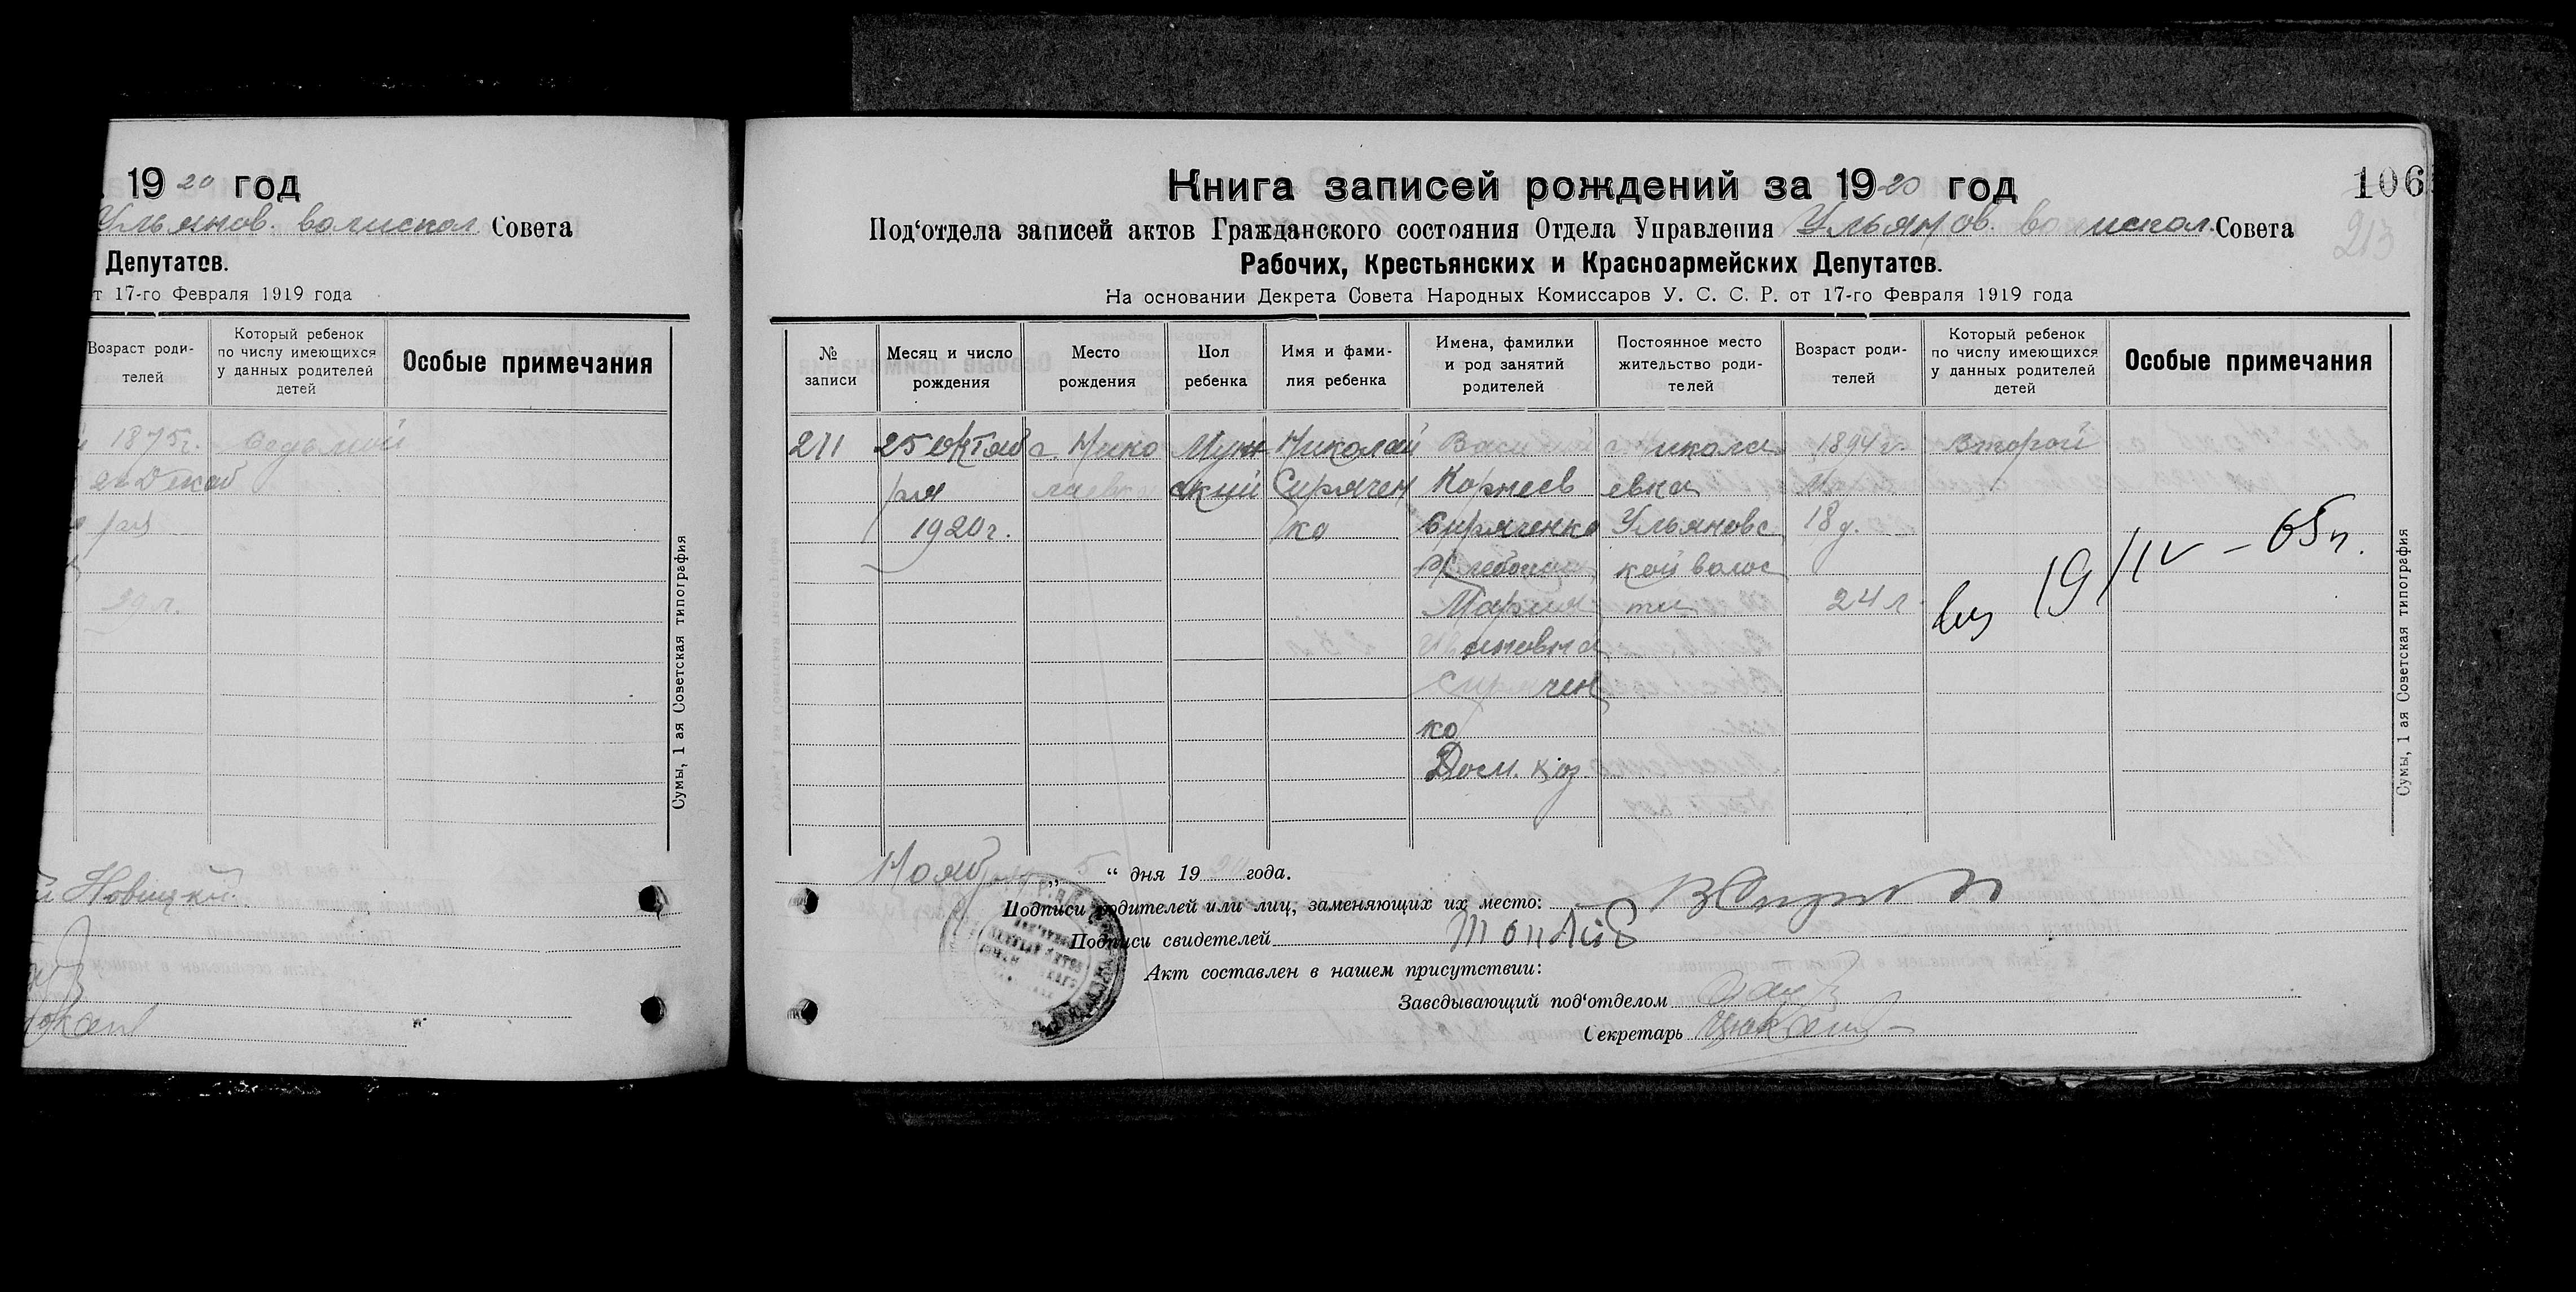 19 20 год
Ульянов. волиспол. Совета
Депутатов.
т 17-го Февраля 1919 года
Возраст роди-
телей
Который ребенок
по числу имеющихся
у данных родителей
детей
Особые примечания
1875г. Седьмой
Декаб
ря
29 л.
Новицкий.
Сумы, 1 ая Советская типография
Книга записей рождений за 1920 год
106
213
Под‘отдела записей актов Гражданского состояния Отдела Управления Ульянов. волиспол. Совета
Рабочих, Крестьянских и Красноармейских Депутатов.
На основании Декрета Совета Народных Комиссаров У. С. С. Р. от 17-го Февраля 1919 года
№
записи
Месяц и число
рождения
Место
рождения
Пол
ребенка
Имя и фами-
лия ребенка
Имена, фамилии
и род занятий
родителей
Постоянное место
жительство роди-
телей
Возраст роди-
телей
Который ребенок
по числу имеющихся
у данных родителей
детей
Особые примечания
211
25 октяб
ря
1920г.
с. Нико
лаев
Муж
ский
Николай
Сирячен
ко
Василий
Корнеев
Сиряченко
Хлебопаш
Мария
Ивановна
Сирячен
ко
Дом. хоз
с. Никола
евка
Ульяновс
кой волос
ти
1894 г.
18 д.
24 л.
Второй
19/IV – 65 г.
Нояб 5 “ дня 19 20 года.
Подписи родителей или лиц, заменяющих их место:
Подписи свидетелей
Акт составлен в нашем присутствии:
Заведывающий под‘отделом
Секретарь
Сумы, 1 ая Советская типография